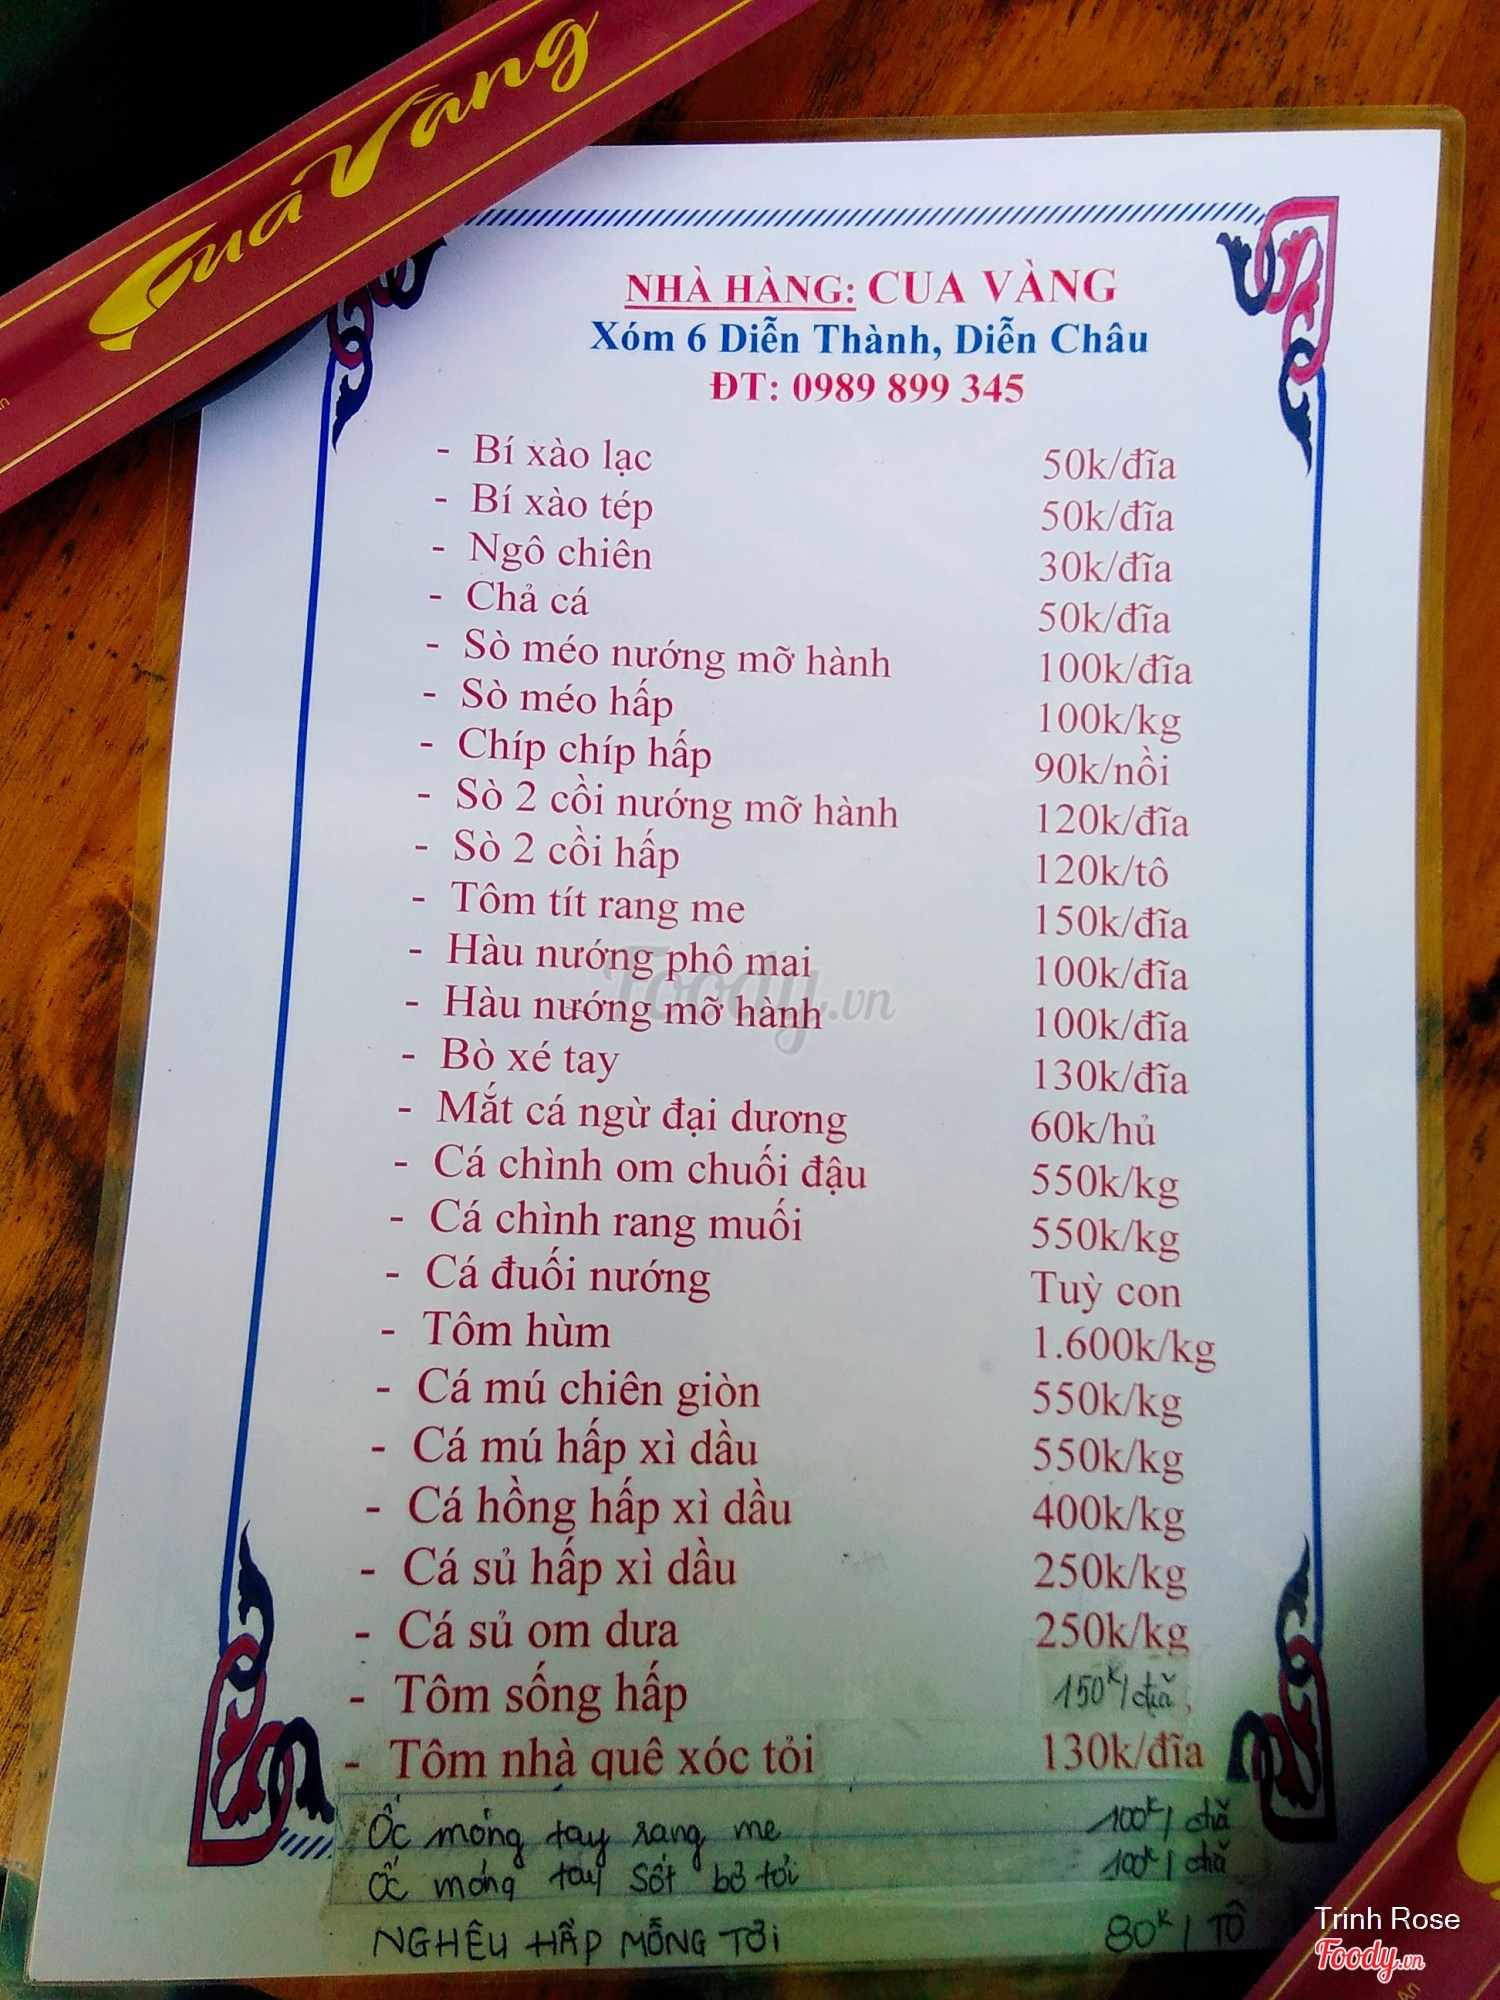 Cua Vàng
NHÀ HÀNG: CUA VÀNG
Xóm 6 Diễn Thành, Diễn Châu
ĐT: 0989 899 345
- Bí xào lạc 50k/đĩa
- Bí xào tép 50k/đĩa
- Ngô chiên 30k/đĩa
- Chả cá 50k/đĩa
- Sò méo nướng mỡ hành 100k/đĩa
- Sò méo hấp 100k/kg
- Chíp chíp hấp 90k/nồi
- Sò 2 cồi nướng mỡ hành 120k/đĩa
- Sò 2 cồi hấp 120k/tô
- Tôm tít rang me 150k/đĩa
- Hàu nướng phô mai 100k/đĩa
- Hàu nướng mỡ hành 100k/đĩa
- Bò xé tay 130k/đĩa
- Mắt cá ngừ đại dương 60k/hủ
- Cá chình om chuối đậu 550k/kg
- Cá chình rang muối 550k/kg
- Cá đuối nướng Tuỳ con
- Tôm hùm 1.600k/kg
- Cá mú chiên giòn 550k/kg
- Cá mú hấp xì dầu 550k/kg
- Cá hồng hấp xì dầu 400k/kg
- Cá sủ hấp xì dầu 250k/kg
- Cá sủ om dưa 250k/kg
- Tôm sống hấp 150k/đĩa
- Tôm nhà quê xóc tỏi 130k/đĩa
Ốc móng tay rang me 100k/đĩa
Ốc móng tay sốt bơ tỏi 100k/đĩa
NGHÊU HẤP MỒNG TƠI 80k/TÔ
Foody.vn
Trinh Rose
Foody.vn